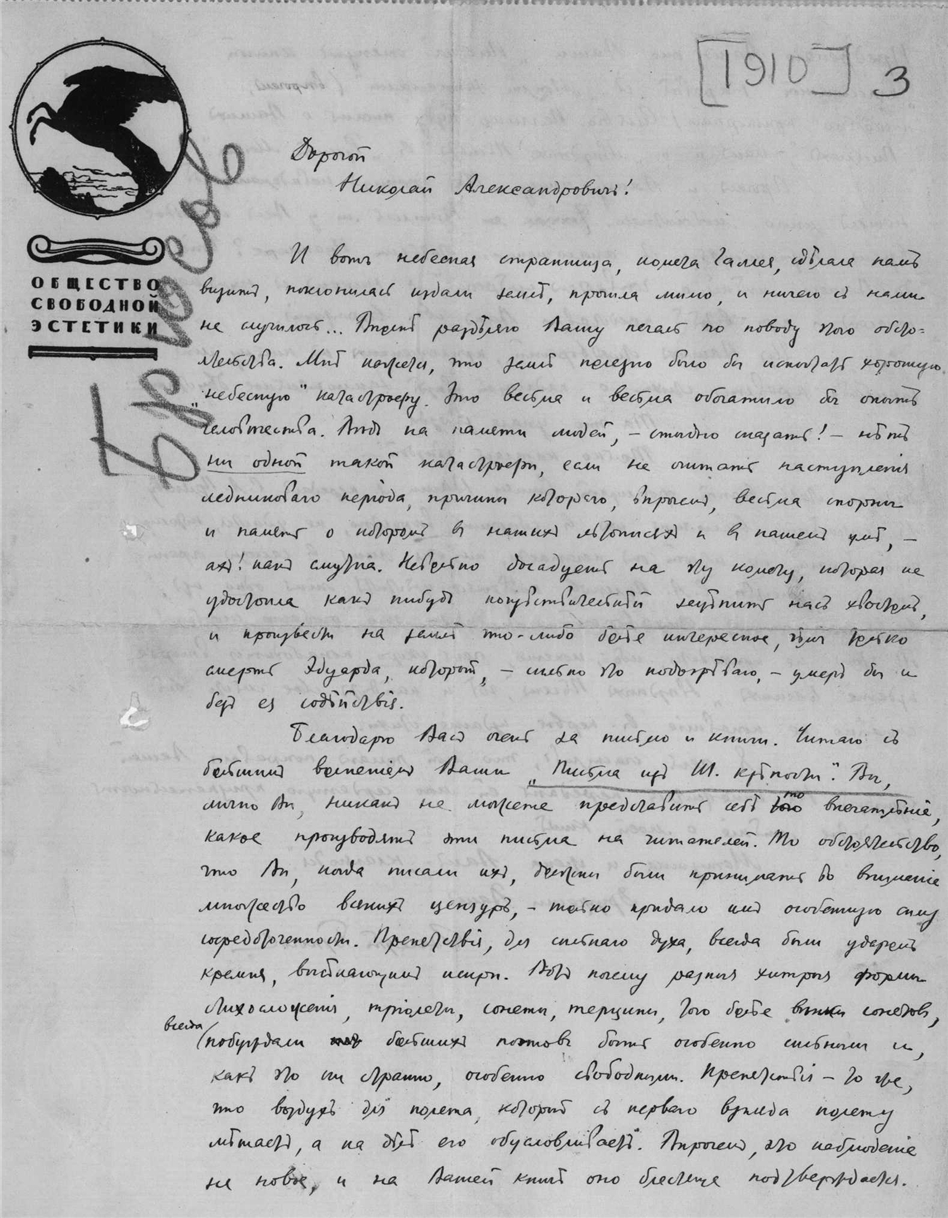 [1910] 3
Брюсов
ОБЩЕСТВО
СВОБОДНОЙ
ЭСТЕТИКИ
Дорогой
Николай Александровичъ!
И вотъ небесная странница, комета Галлея, сдѣлала намъ
визитъ, поклонилась издали землѣ, прошла мимо, и ничего съ нами
не случилось... Вполнѣ раздѣляю Вашу печаль по поводу этого обсто-
ятельства. Мнѣ кажется, что землѣ полезно было бы испытать хорошую
"небесную" катастрофу. Это весьма и весьма обогатило бы опытъ
человѣчества. Вѣдь на памяти людей, – стыдно сказать! – нѣтъ
ни одной такой катастрофы, если не считать наступленія
ледниковаго періода, причины котораго, впрочемъ, весьма спорны
и память о которомъ въ нашихъ лѣтописяхъ и въ нашемъ умѣ, –
ахъ! какъ смутна. Невольно досадуешь на эту комету, которая не
удостоила какъ нибудь почувствительнѣй зацѣпить насъ хвостомъ,
и произвести на землѣ что-либо болѣе интересное, чѣмъ
смерть Эдуарда, который, – сильно это подозрѣваю, – умеръ бы и
безъ ея содѣйствія.
Благодарю Васъ очень за письмо и книги. Читаю съ
большимъ волненіемъ Ваши „Письма изъ Ш. крѣпости". Вы,
лично Вы, никакъ не можете представить себѣ то впечатлѣніе,
какое производятъ эти письма на читателей. То обстоятельство,
что Вы, когда писали ихъ, должны были принимать во вниманіе
множество всякихъ цензуръ, – только придало имъ особенную силу
сосредоточенности. Препятствія, для сильнаго духа, всегда были ударомъ
кремня, высѣкающимъ искры. Вотъ почему разныя хитрыя формы
стихосложенія, тріолеты, сонеты, терцины, того болѣе сонетовъ,
всегда побуждали большихъ поэтовъ быть особенно сильными и,
какъ это ни странно, особенно свободными. Препятствія – то же,
что воздухъ для полета, который съ перваго взгляда полету
мѣшаетъ, а на дѣлѣ его обусловливаетъ. Впрочемъ, это наблюденіе
не новое, и на Вашей книгѣ оно блестяще подтверждается.